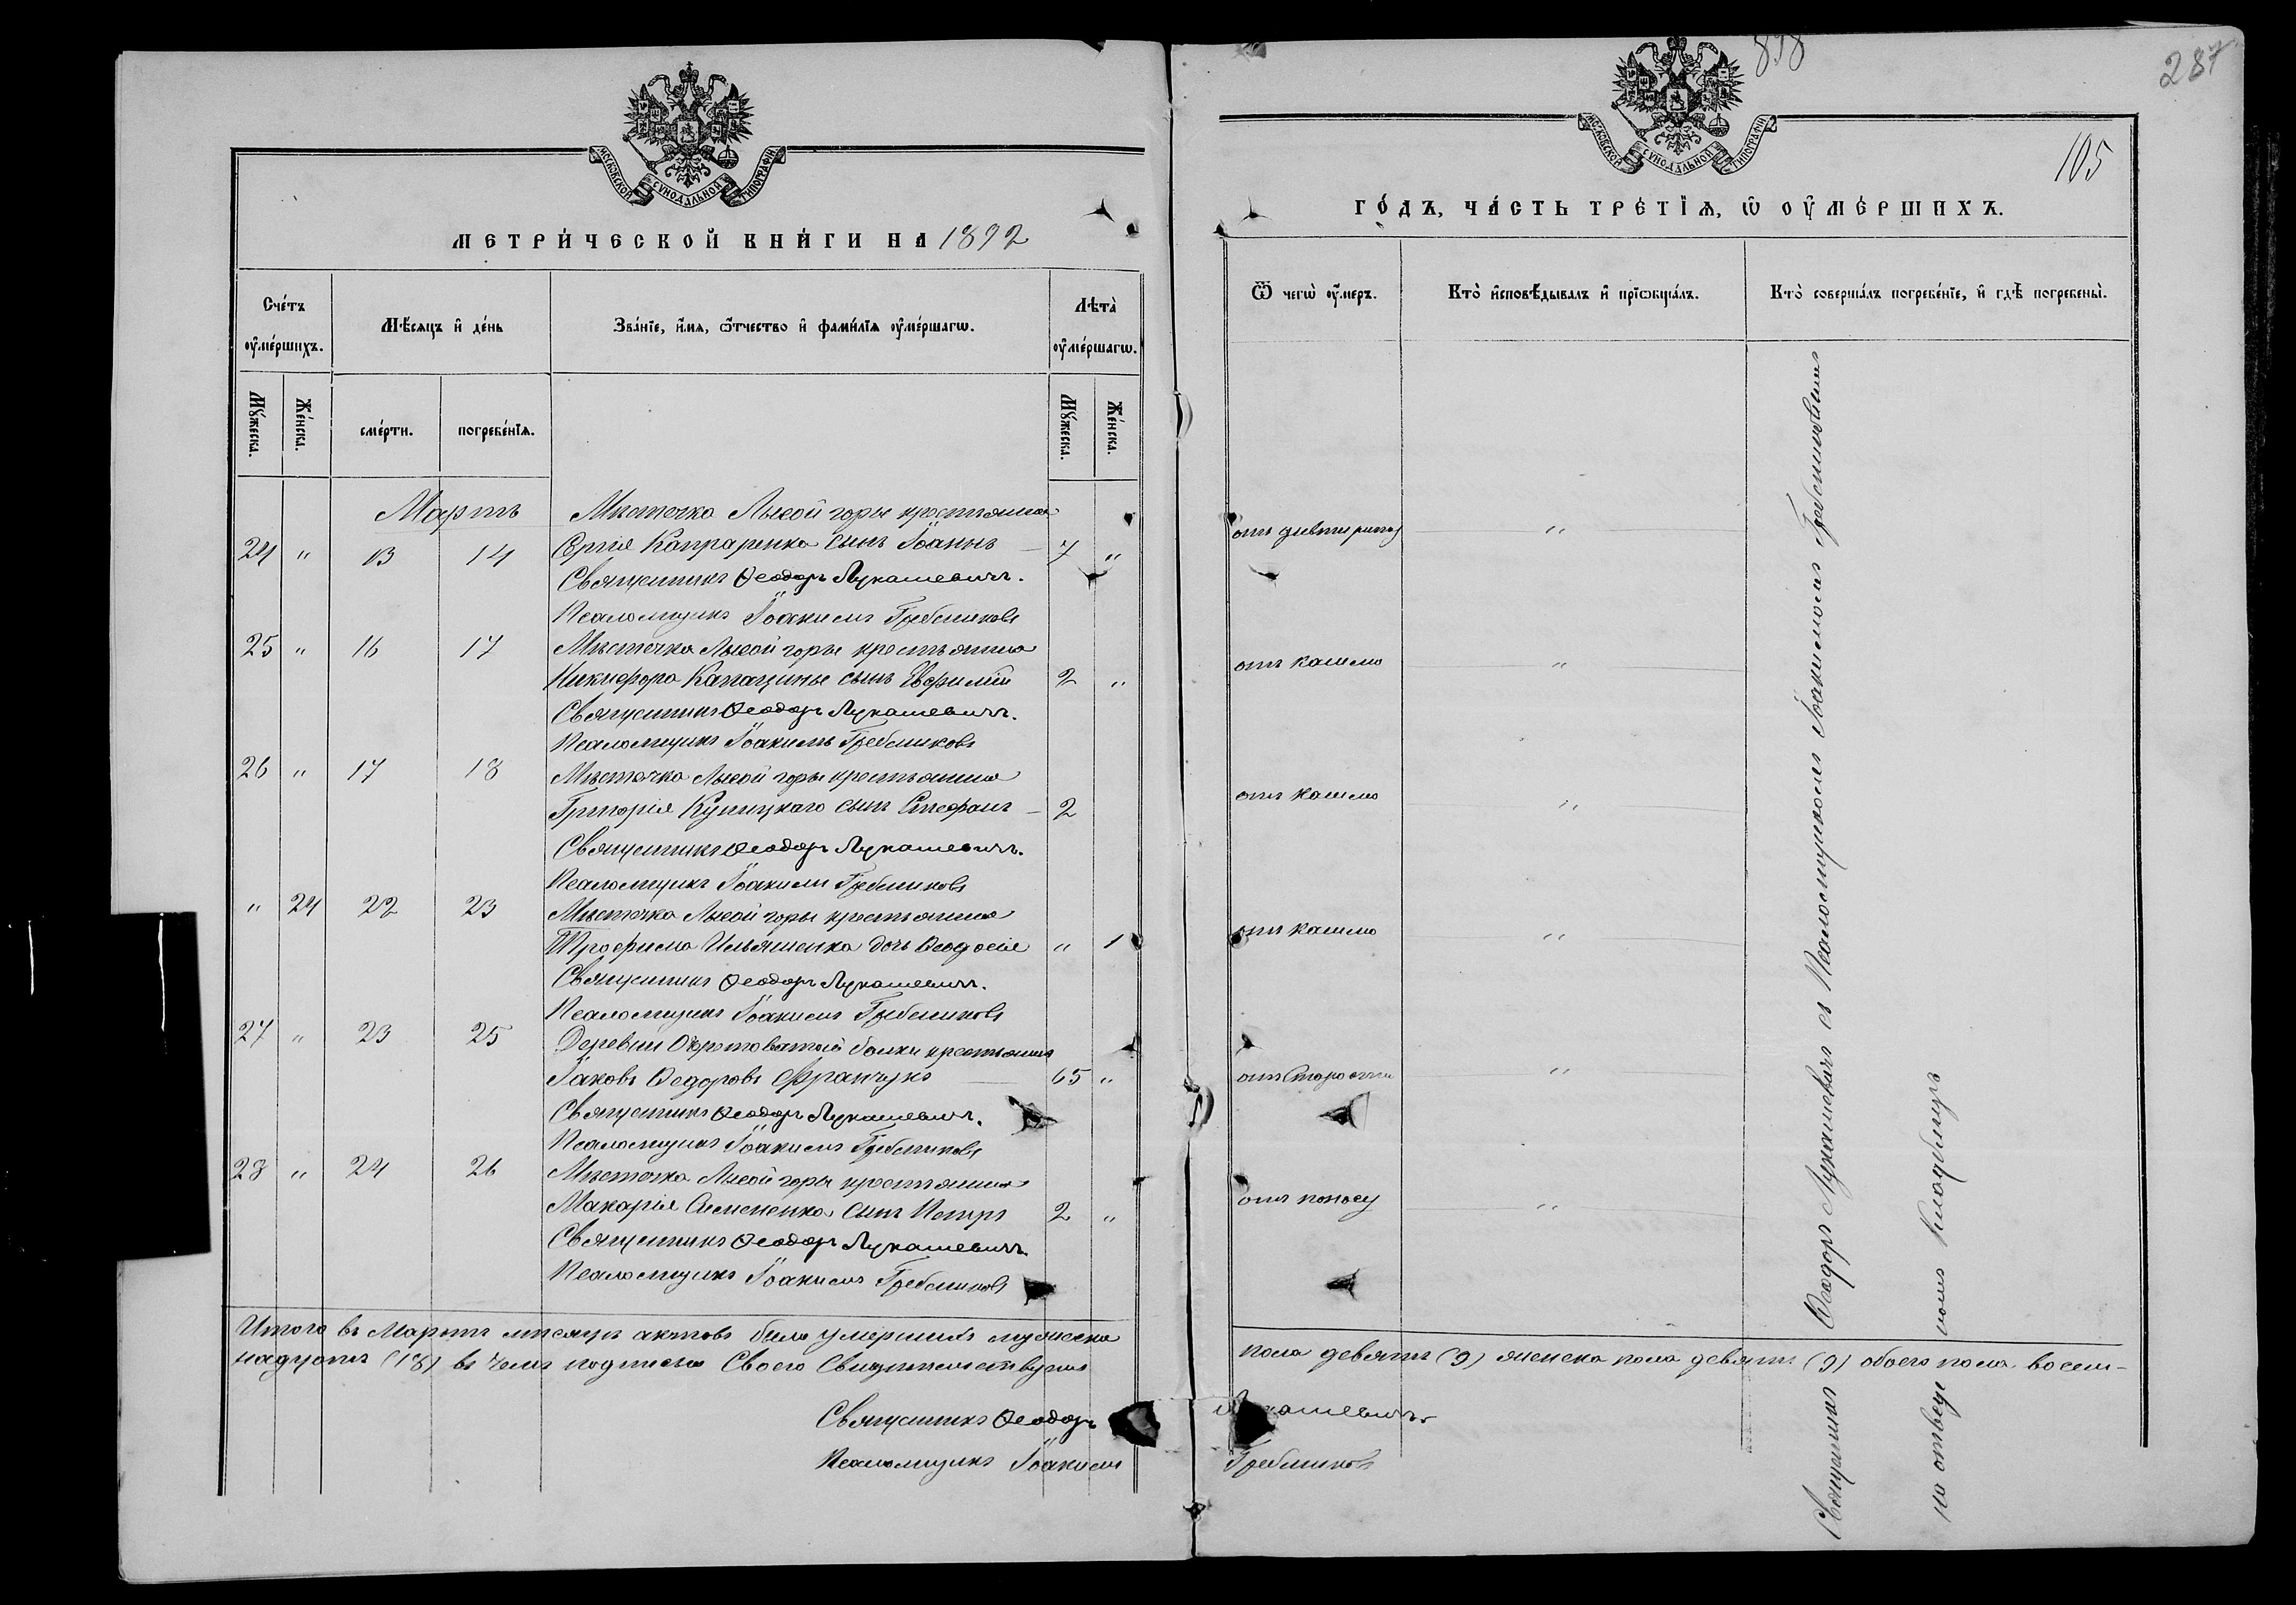 МОСКОВСКОЙ СУНОДАЛЬНОЙ ТИПОГРАФІИ
МЕТРИ́ЧЕСКОЙ КНИ́ГИ НА 1892
Сче́тъ ᲂу҆ме́ршихъ.
Мѣ́сяцъ и҆ де́нь
Зва́нїе, и҆́мя, ѻ҆́тчество и҆ фами́лїя ᲂу҆ме́ршагѡ.
Лѣта̀ ᲂу҆ме́ршагѡ.
Мꙋ́жеска.
Же́нска.
сме́рти.
погребе́нїѧ.
Мꙋ́жеска.
Же́нска.
Мартъ
Мѣстечка Лысой горы крестьянина
24 " 13 14 Сергія Капраренка сынъ Іоаннъ — 7 "
Священникъ Ѳеодоръ Лукашевичъ.
Псаломщикъ Іоакимъ Гребенниковъ
25 " 16 17 Мѣстечка Лысой горы крестьянина
Никифора Капацины сынъ Евфимій 2 "
Священникъ Ѳеодоръ Лукашевичъ.
Псаломщикъ Іоакимъ Гребенниковъ
26 " 17 18 Мѣстечка Лысой горы крестьянина
Григорія Куницкаго сынъ Стефанъ — 2
Священникъ Ѳеодоръ Лукашевичъ.
Псаломщикъ Іоакимъ Гребенниковъ
" 24 22 23 Мѣстечка Лысой горы крестьянина
Трофима Ильяшенка дочь Ѳеодосія " 1
Священникъ Ѳеодоръ Лукашевичъ.
Псаломщикъ Іоакимъ Гребенниковъ
27 " 23 25 Деревни балки крестьянинъ
Іаковъ Ѳедоровъ Франчукъ 65 "
Священникъ Ѳеодоръ Лукашевичъ.
Псаломщикъ Іоакимъ Гребенниковъ
28 " 24 26 Мѣстечка Лысой горы крестьянина
Макарія Симененка сынъ Петръ 2 "
Священникъ Ѳеодоръ Лукашевичъ
Псаломщикъ Іоакимъ Гребенниковъ
Итого въ Мартѣ мѣсяцѣ актовъ было умершихъ мужеска
надцать (18) въ чемъ подписью своею свидѣтельствуемъ
Священникъ Ѳеодоръ
Псаломщикъ Іоакимъ
898
287
105
МОСКОВСКОЙ СУНОДАЛЬНОЙ ТИПОГРАФІИ
ГО́ДЪ, ЧА́СТЬ ТРЕ́ТІѦ, Ѡ҆ ОУ҆МЕ́РШИХЪ.
Ѿ чегѡ̀ ᲂу҆́меръ.
Кто̀ и҆сповѣ́дывалъ и҆ прїѡбща́лъ.
Кто̀ соверша́лъ погребе́нїе, и҆ гдѣ̀ погребены̀.
отъ "
отъ кашлю "
отъ кашлю "
отъ кашлю "
отъ старости "
отъ поносу "
Священникъ Ѳеодоръ Лукашевичъ съ Псаломщикомъ Іоакимомъ Гребенниковымъ
на отведенномъ кладбищѣ
пола девять (9) женска пола девять (9) обоего пола восем-
Лукашевичъ
Гребенниковъ